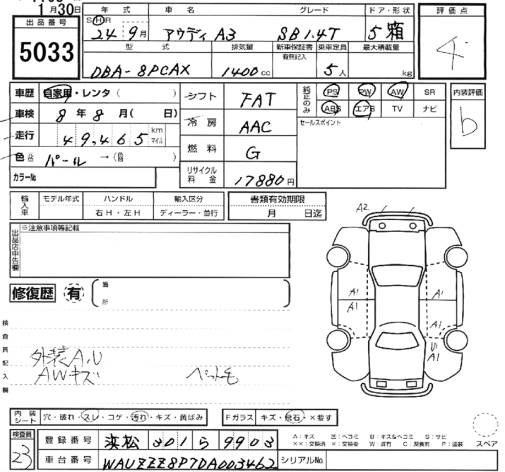 月30日
出品番号
5033
年式 車名 グレード ドア・形状
S H R 24年9月 アウディ A3 SB1.4T 5 箱
型式 排気量 新車保証書 乗車定員 最大積載量
有無記入
DBA-8PCAX 1400cc 5人 kg
評価点
4
車歴 自家用・レンタ( )
車検 8年8月( 日)
走行 49,465 km マイル
色 パール →( )
カラーNo.
シフト FAT
冷房 AAC
燃料 G
リサイクル料金 17880円
純正のみ PS PW AW SR
ABS エアB TV ナビ
セールスポイント
内装評価
b
輸入車 モデル年式 ハンドル 輸入区分
右H・左H ディーラー・並行
書類有効期限
月 日迄
出品店申告欄
※注意事項等記載
修復歴 有
箇所
検査員記入欄
外装A,U
AWキズ
ペット毛
A2
A1
A1
A1
A1
U1
A1
内装シート 穴・破れ・スレ・コゲ・汚れ・キズ・黄ばみ
Fガラス キズ・飛石・×要す
スペア
検査員
23
登録番号 浜松 301 ら 9903
車台番号 WAUZZZ8P7DA003462
シリアルNo.
A:キズ E:エクボ B:キズ&ヘコミ S:サビ